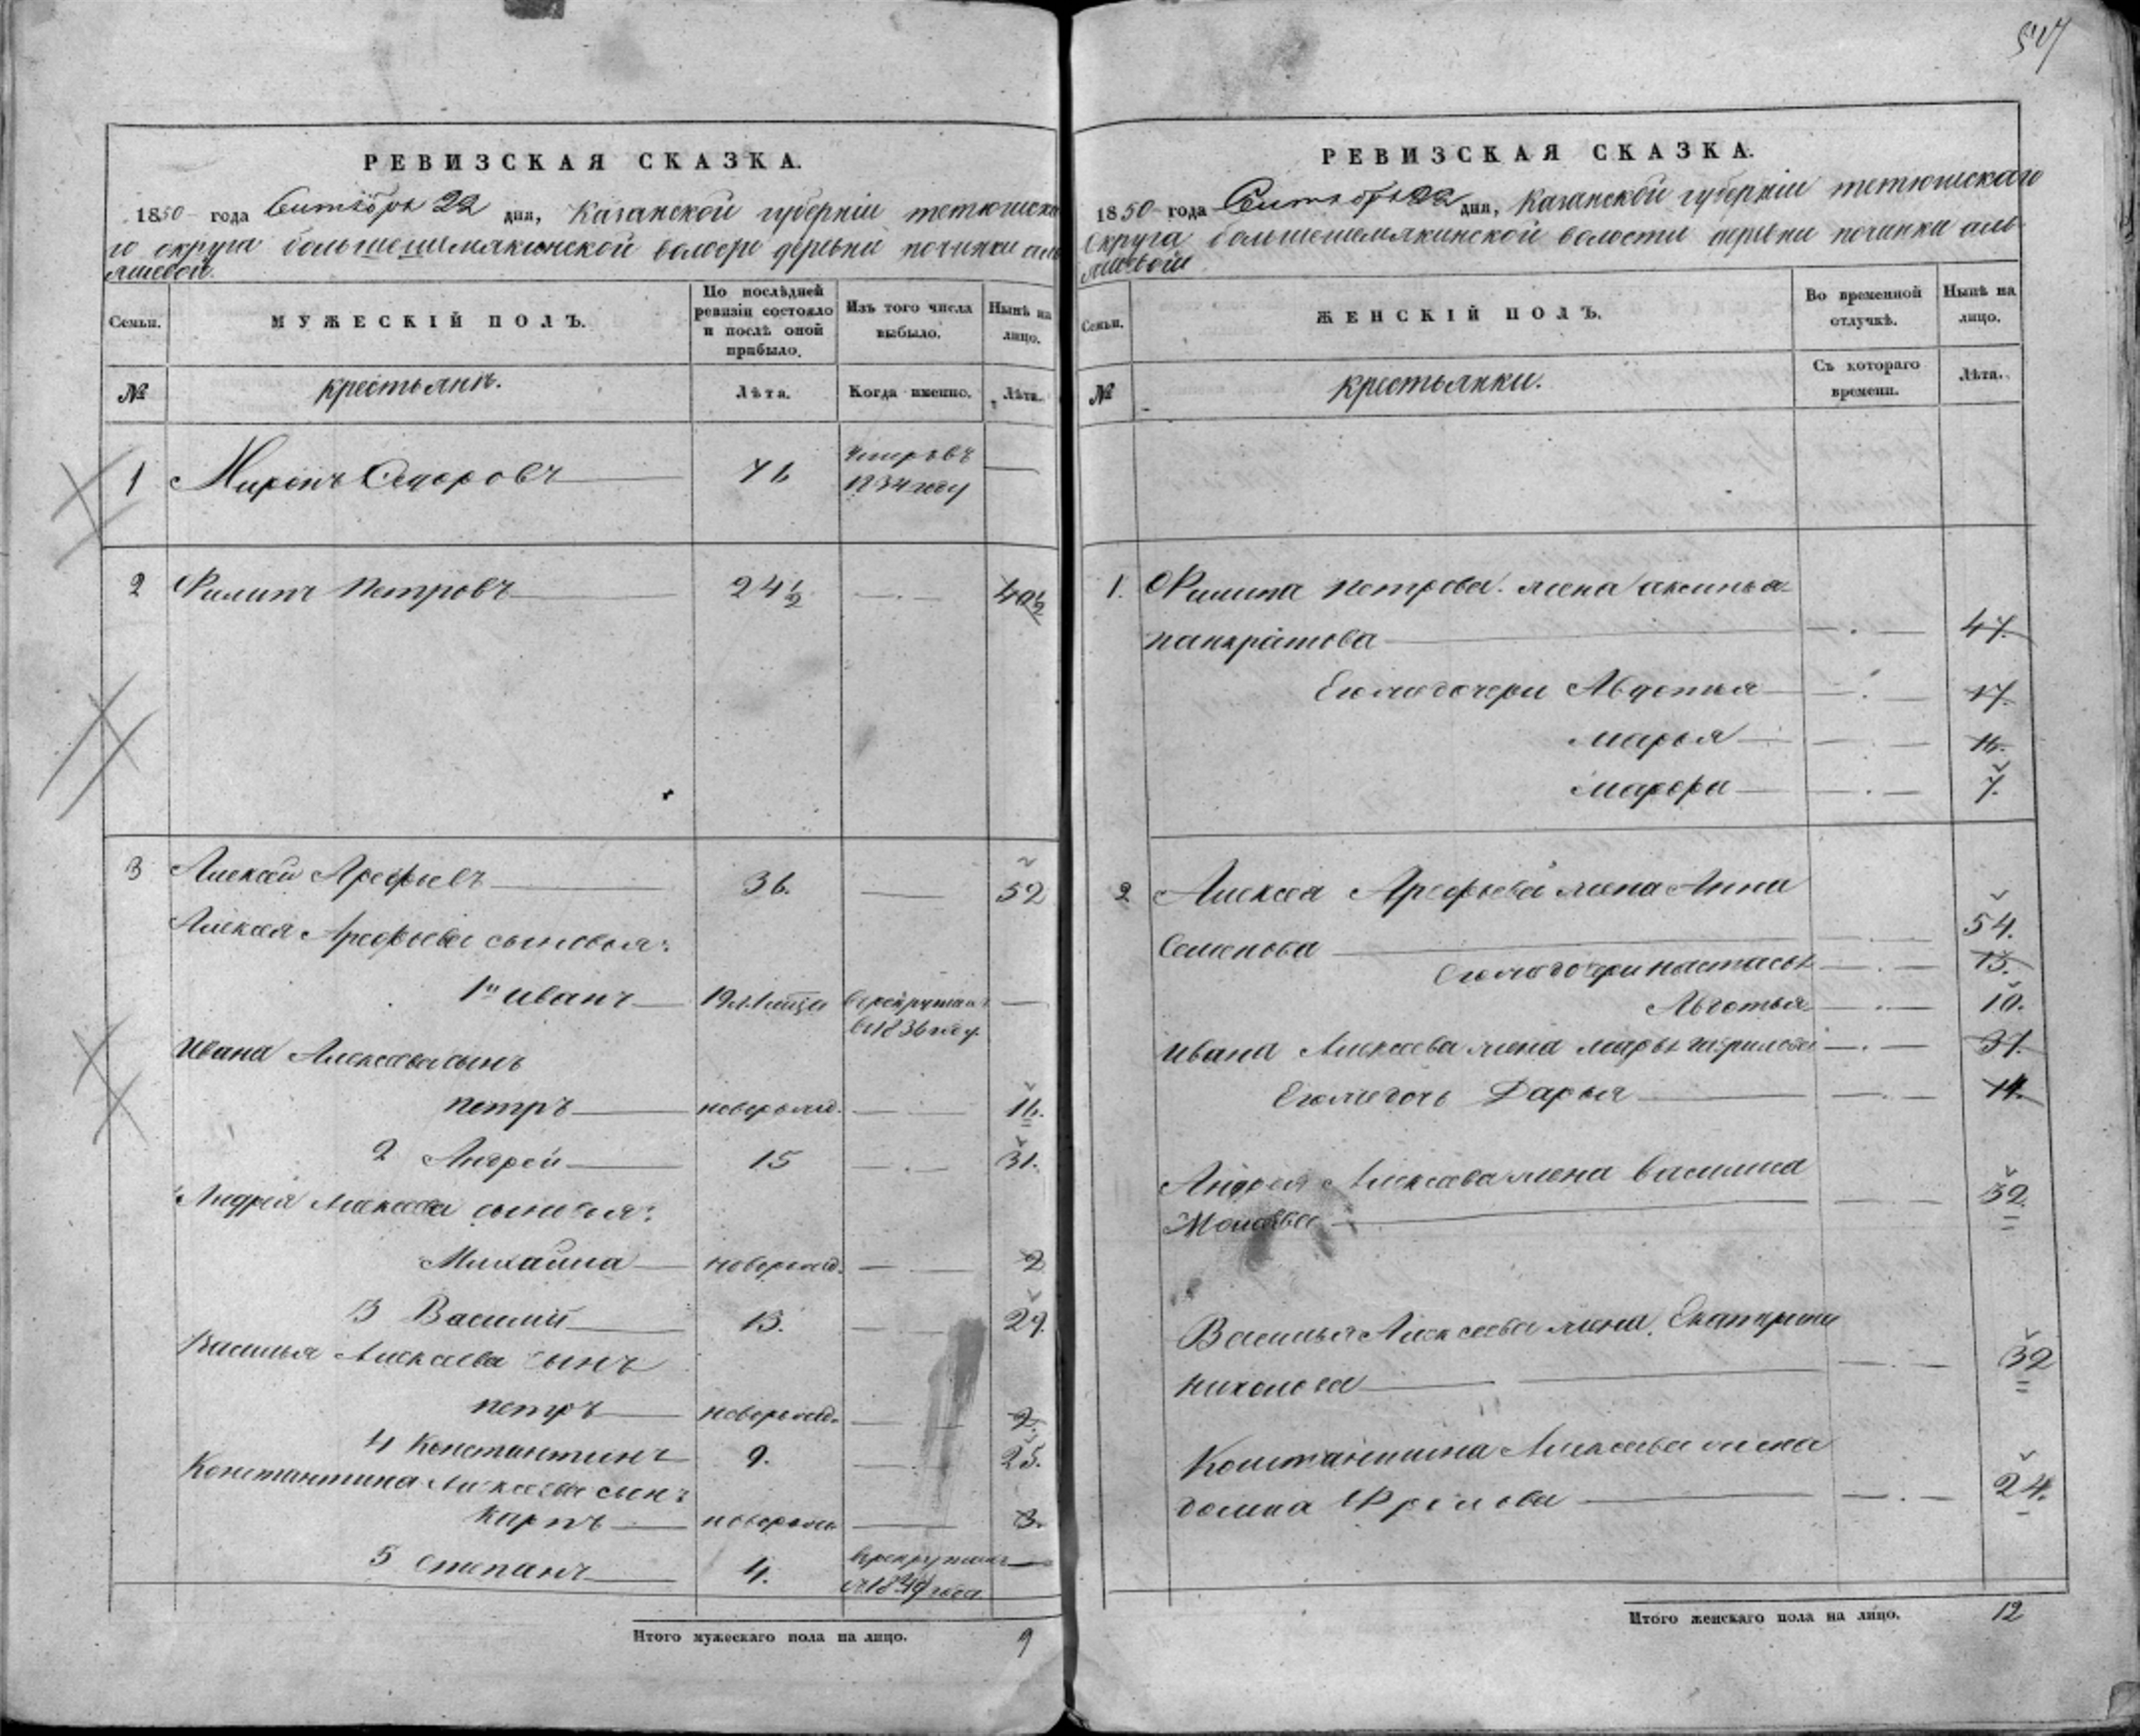 547
РЕВИЗСКАЯ СКАЗКА.
1850 года Сентября 22 дня, Казанской губерніи тетюшска
го округа большешемякинской волости деревни починки аль
яшевой.
Семьи.
МУЖЕСКІЙ ПОЛЪ.
По послѣдней ревизіи состояло и послѣ оной прибыло.
Изъ того числа выбыло.
Нынѣ на лицо.
№
крестьянъ.
Лѣта.
Когда именно.
Лѣта.
1 Миронъ Сидоровъ 76 умеръ въ —
1834 году
2 Филипъ Петровъ 24½ — 40½
3 Алексей Арефьевъ 36. — 52
Алексея Арефьева сыновья:
1й иванъ 19 л. врекрутахъ —
въ 1836 году
Ивана Алексеева сынъ
петръ новорожд. — 16.
2 Андрей 15 — 31.
Андрея Алексеева сыновья:
Михаила новорожд. — 2
3 Василий 13. — 29.
Василья Алексеева сынъ
петръ новорожд. — 2.
4 Константинъ 9. — 25.
Константина Алексеева сынъ
Карпъ новорожд — 3.
5 степанъ 4. врекрутахъ —
года
Итого мужескаго пола на лицо. 9
РЕВИЗСКАЯ СКАЗКА.
1850 года Сентября 22 дня, Казанской губерніи тетюшскаго
Округа большешемякинской волости деревни починка аль
яшевой
Семьи.
ЖЕНСКІЙ ПОЛЪ.
Во временной отлучкѣ.
Нынѣ на лицо.
№
крестьянки.
Съ котораго времени.
Лѣта.
1. Филипа петрова жена аксинья
панкратова — 47.
Егожедочери Авдотья — 17.
марья — 16.
марфа — 7.
2 Алексея Арефьева жена Анна
Семенова — 54.
егожедочери настасья — 15.
Авдотья — 10.
ивана Алексеева жена марья гаврилова — 37.
Егожедочь Дарья — 14.
Андрея Алексеева жена василиса
— 32.
Василья Алексеева жена Екатерина
николаева — 32
Константина Алексеева жена
домна Фролова — 24.
Итого женскаго пола на лицо. 12